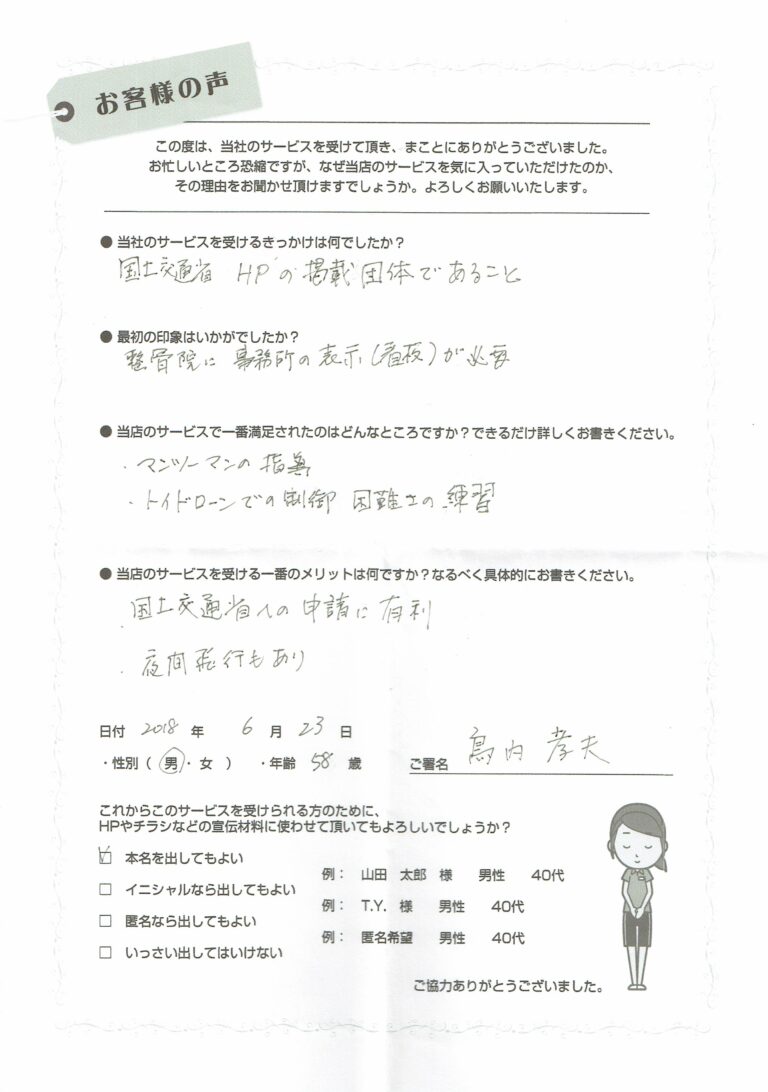 お客様の声
この度は、当社のサービスを受けて頂き、まことにありがとうございました。
お忙しいところ恐縮ですが、なぜ当店のサービスを気に入っていただけたのか、
その理由をお聞かせ頂けますでしょうか。よろしくお願いいたします。
● 当社のサービスを受けるきっかけは何でしたか？
国土交通省 HPの掲載団体であること
● 最初の印象はいかがでしたか？
整骨院に事務所の表示(看板)が必要
● 当店のサービスで一番満足されたのはどんなところですか？できるだけ詳しくお書きください。
・マンツーマンの指導
・トイドローンでの制御 困難さの練習
● 当店のサービスを受ける一番のメリットは何ですか？なるべく具体的にお書きください。
・国土交通省への申請に有利
・夜間飛行もあり
日付 2018 年 6 月 23 日
・性別（ 男・女 ） ・年齢 58 歳 ご署名 鳥内 孝夫
これからこのサービスを受けられる方のために、
HPやチラシなどの宣伝材料に使わせて頂いてもよろしいでしょうか？
☑ 本名を出してもよい 例： 山田 太郎 様 男性 40代
□ イニシャルなら出してもよい 例： T.Y. 様 男性 40代
□ 匿名なら出してもよい 例： 匿名希望 男性 40代
□ いっさい出してはいけない
ご協力ありがとうございました。